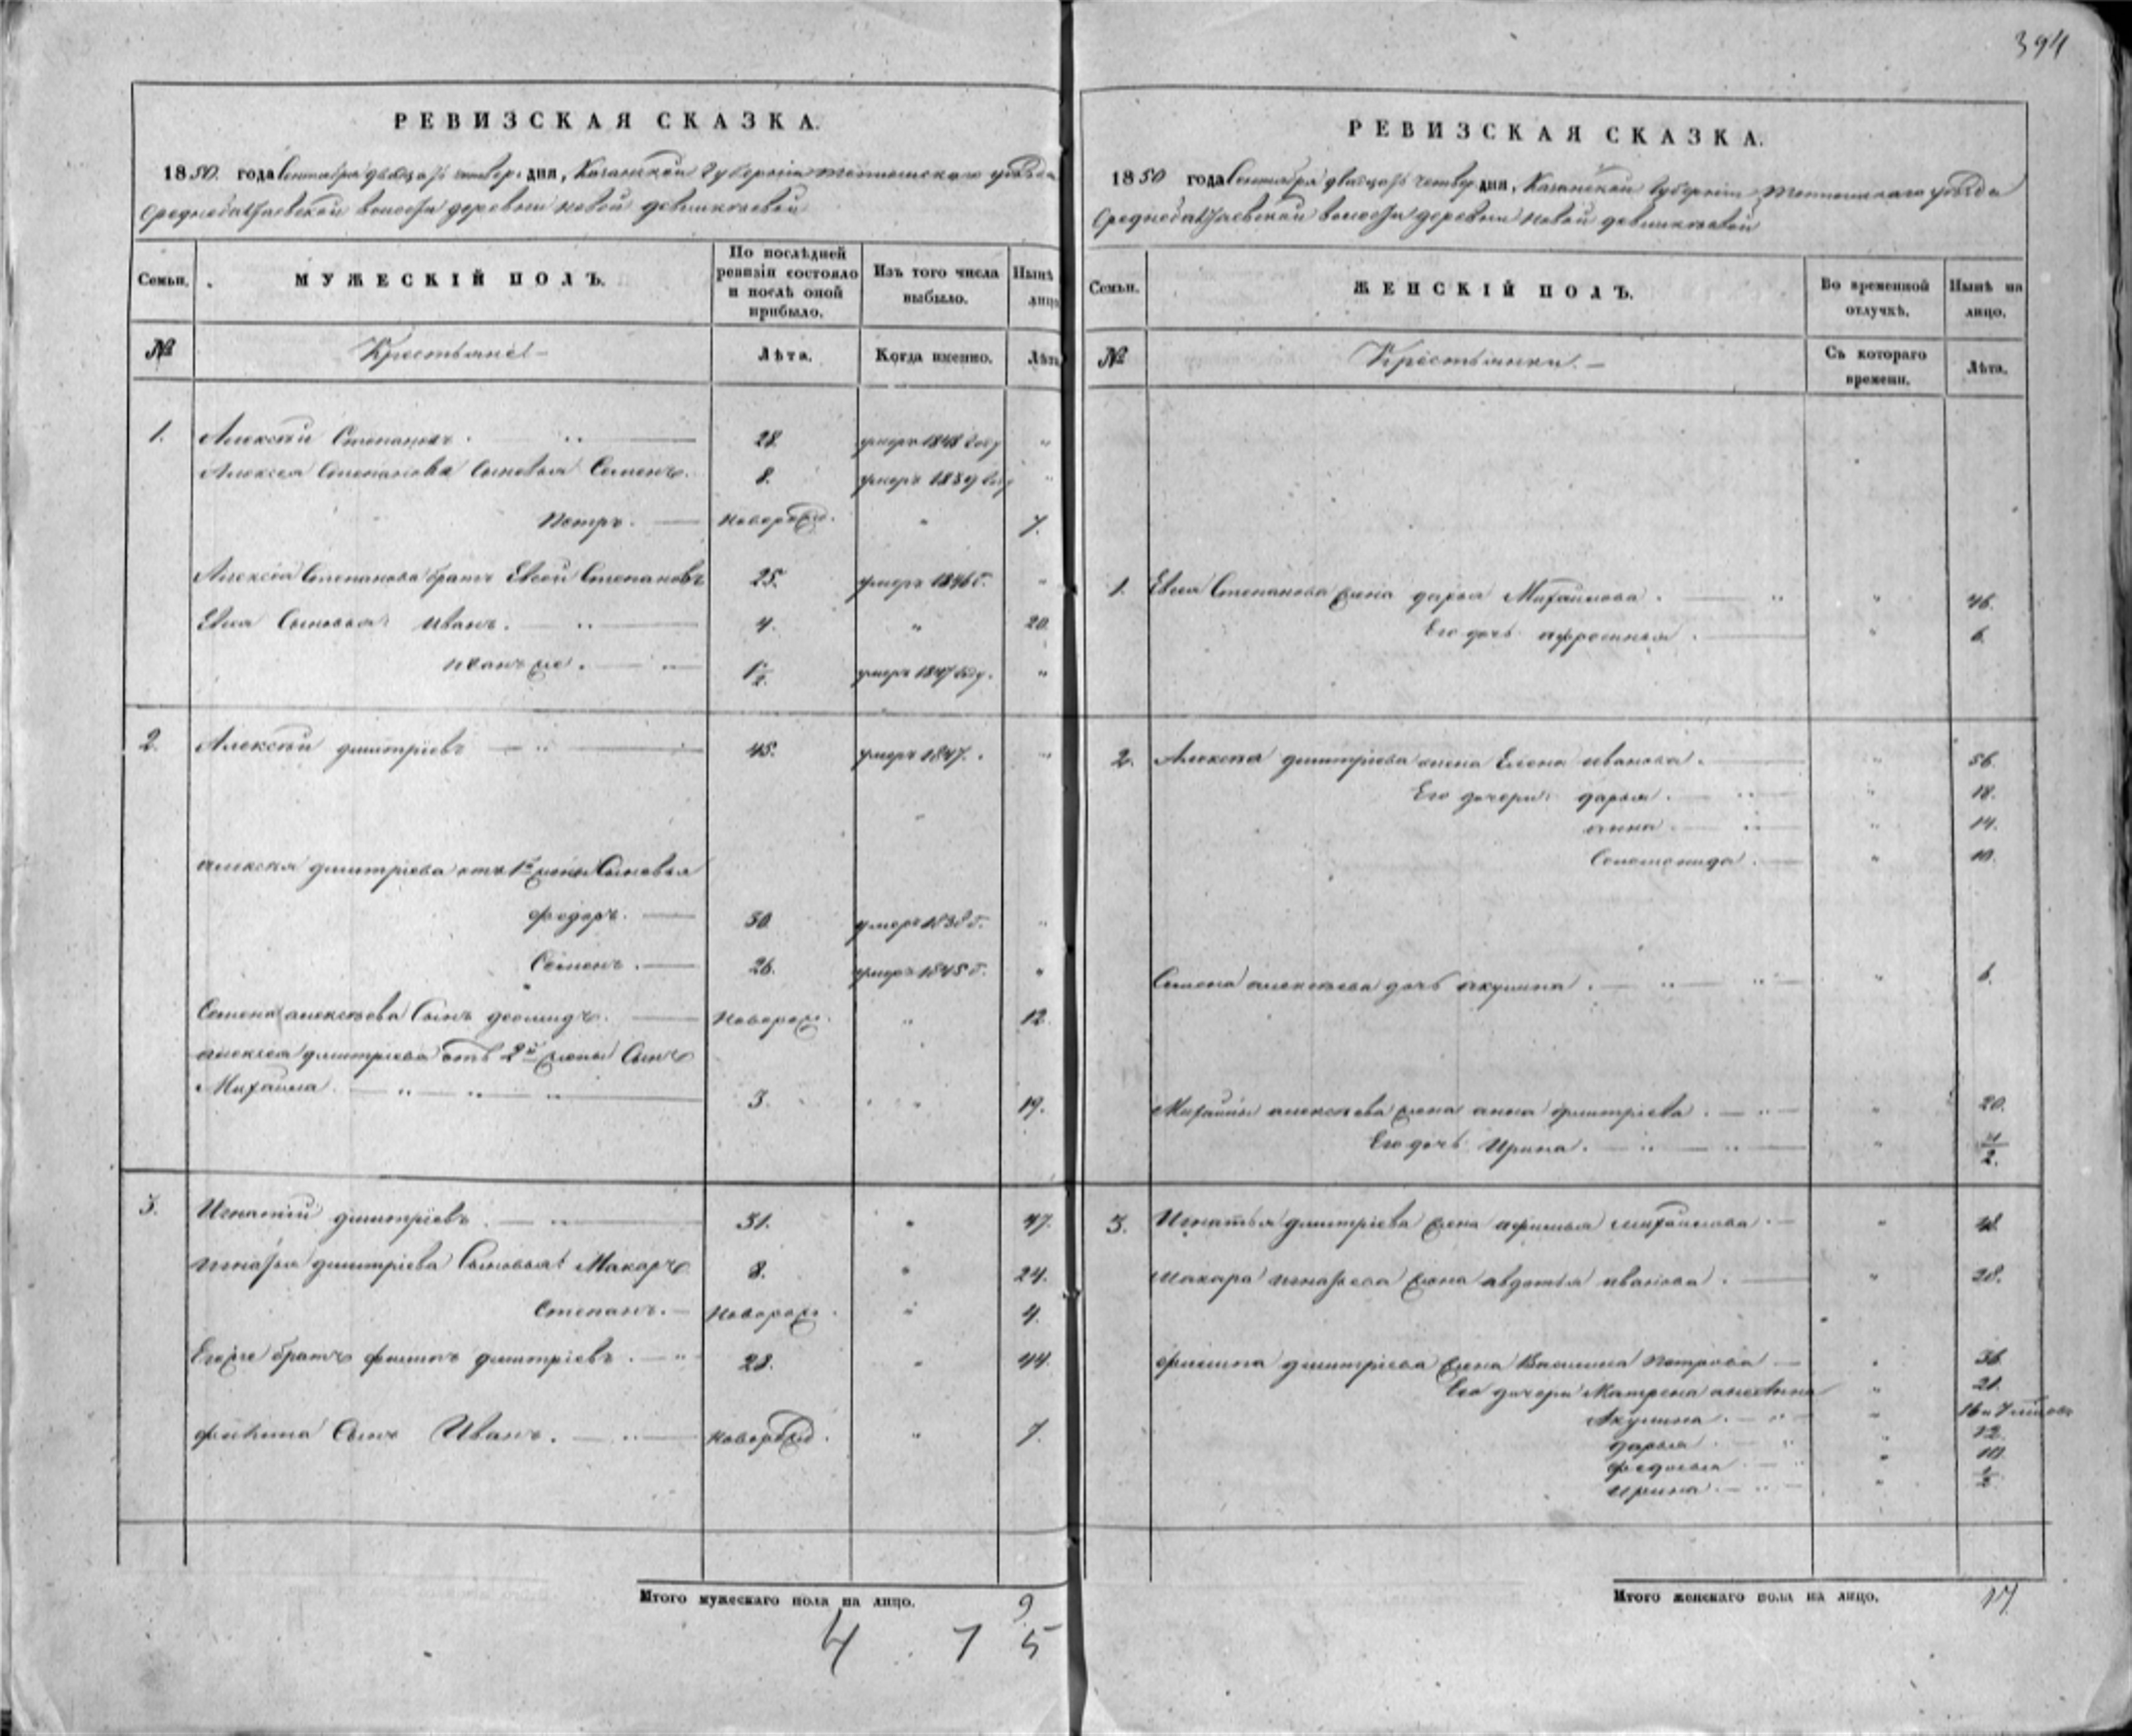 394
РЕВИЗСКАЯ СКАЗКА.
1850. года Сентября двадцать четвер. дня, Казанской Губернии Тетюшскаго уѣзда
Среднебалтаевской волости деревни новой
Семьи.
МУЖЕСКІЙ ПОЛЪ.
По послѣдней ревизіи состояло и послѣ оной прибыло.
Изъ того числа выбыло.
Нынѣ лицо
№
Крестьяне
Лѣта.
Когда именно.
Лѣта
1. Алексѣй Степановъ. 28. умеръ 1848 году "
Алексея Степанова сыновья Семенъ. 8. умеръ 1839 году "
Петръ. Новорожд. " 7.
Алексея Степанова братъ Евсей Степановъ 25. умеръ 1846 г. "
Евсея Сыновья: Иванъ. 4. " 20.
Иванъ же. 1/2. умеръ 1847 году. "
2. Алексѣй дмитріевъ 45. умеръ 1847. "
алексея дмитріева отъ 1й жены Сыновья
федоръ. 30 умеръ 1838 г. "
Семенъ. 26. умеръ 1845 г. "
Семена алексѣева Сынъ деомидъ. Новорож. " 12
алексея дмитріева отъ 2й жены Сынъ
Михайла 3. " 19.
3. Игнатій дмитріевъ. 31. " 47.
игнатья дмитріева Сыновья: Макаръ 8. " 24.
Степанъ. Новорож. " 4.
Егорге братъ филипъ дмитріевъ. 28. " 44
филипа Сынъ Иванъ. новорожд. " 7.
Итого мужескаго пола на лицо. 9.
4 7 5
РЕВИЗСКАЯ СКАЗКА.
1850 года Сентября двадцать четвер дня, Казанской Губерніи Тетюшскаго уѣзда
Среднебалтаевской волости деревни Новой
Семьи.
ЖЕНСКІЙ ПОЛЪ.
Во временной отлучкѣ.
Нынѣ на лицо.
№
Крестьянки.
Съ котораго времени.
Лѣта.
1. Евсея Степанова жена дарья Михайлова. " 46.
Его дочь афросинья. " 6.
2. Алексея дмитріева жена Елена иванова. " 56.
Его дочери: дарья. " 18.
анна. " 14.
Соломонида. " 10.
Семена алексѣева дочь акулина. " 6.
Михайлы алексѣева жена анна дмитріева. " 20.
Его дочь Ирина. " 1/2.
3. Игнатья дмитріева жена афимья михайлова. " 48.
Макара игнатьева жена авдотья иванова. " 28.
филипа дмитріева жена Василиса Петрова " 36.
Его дочери Матрена " 21.
Акулина. "
дарья. " 12.
федосья " 10.
ирина. " 1/2
Итого женскаго пола на лицо. 17.